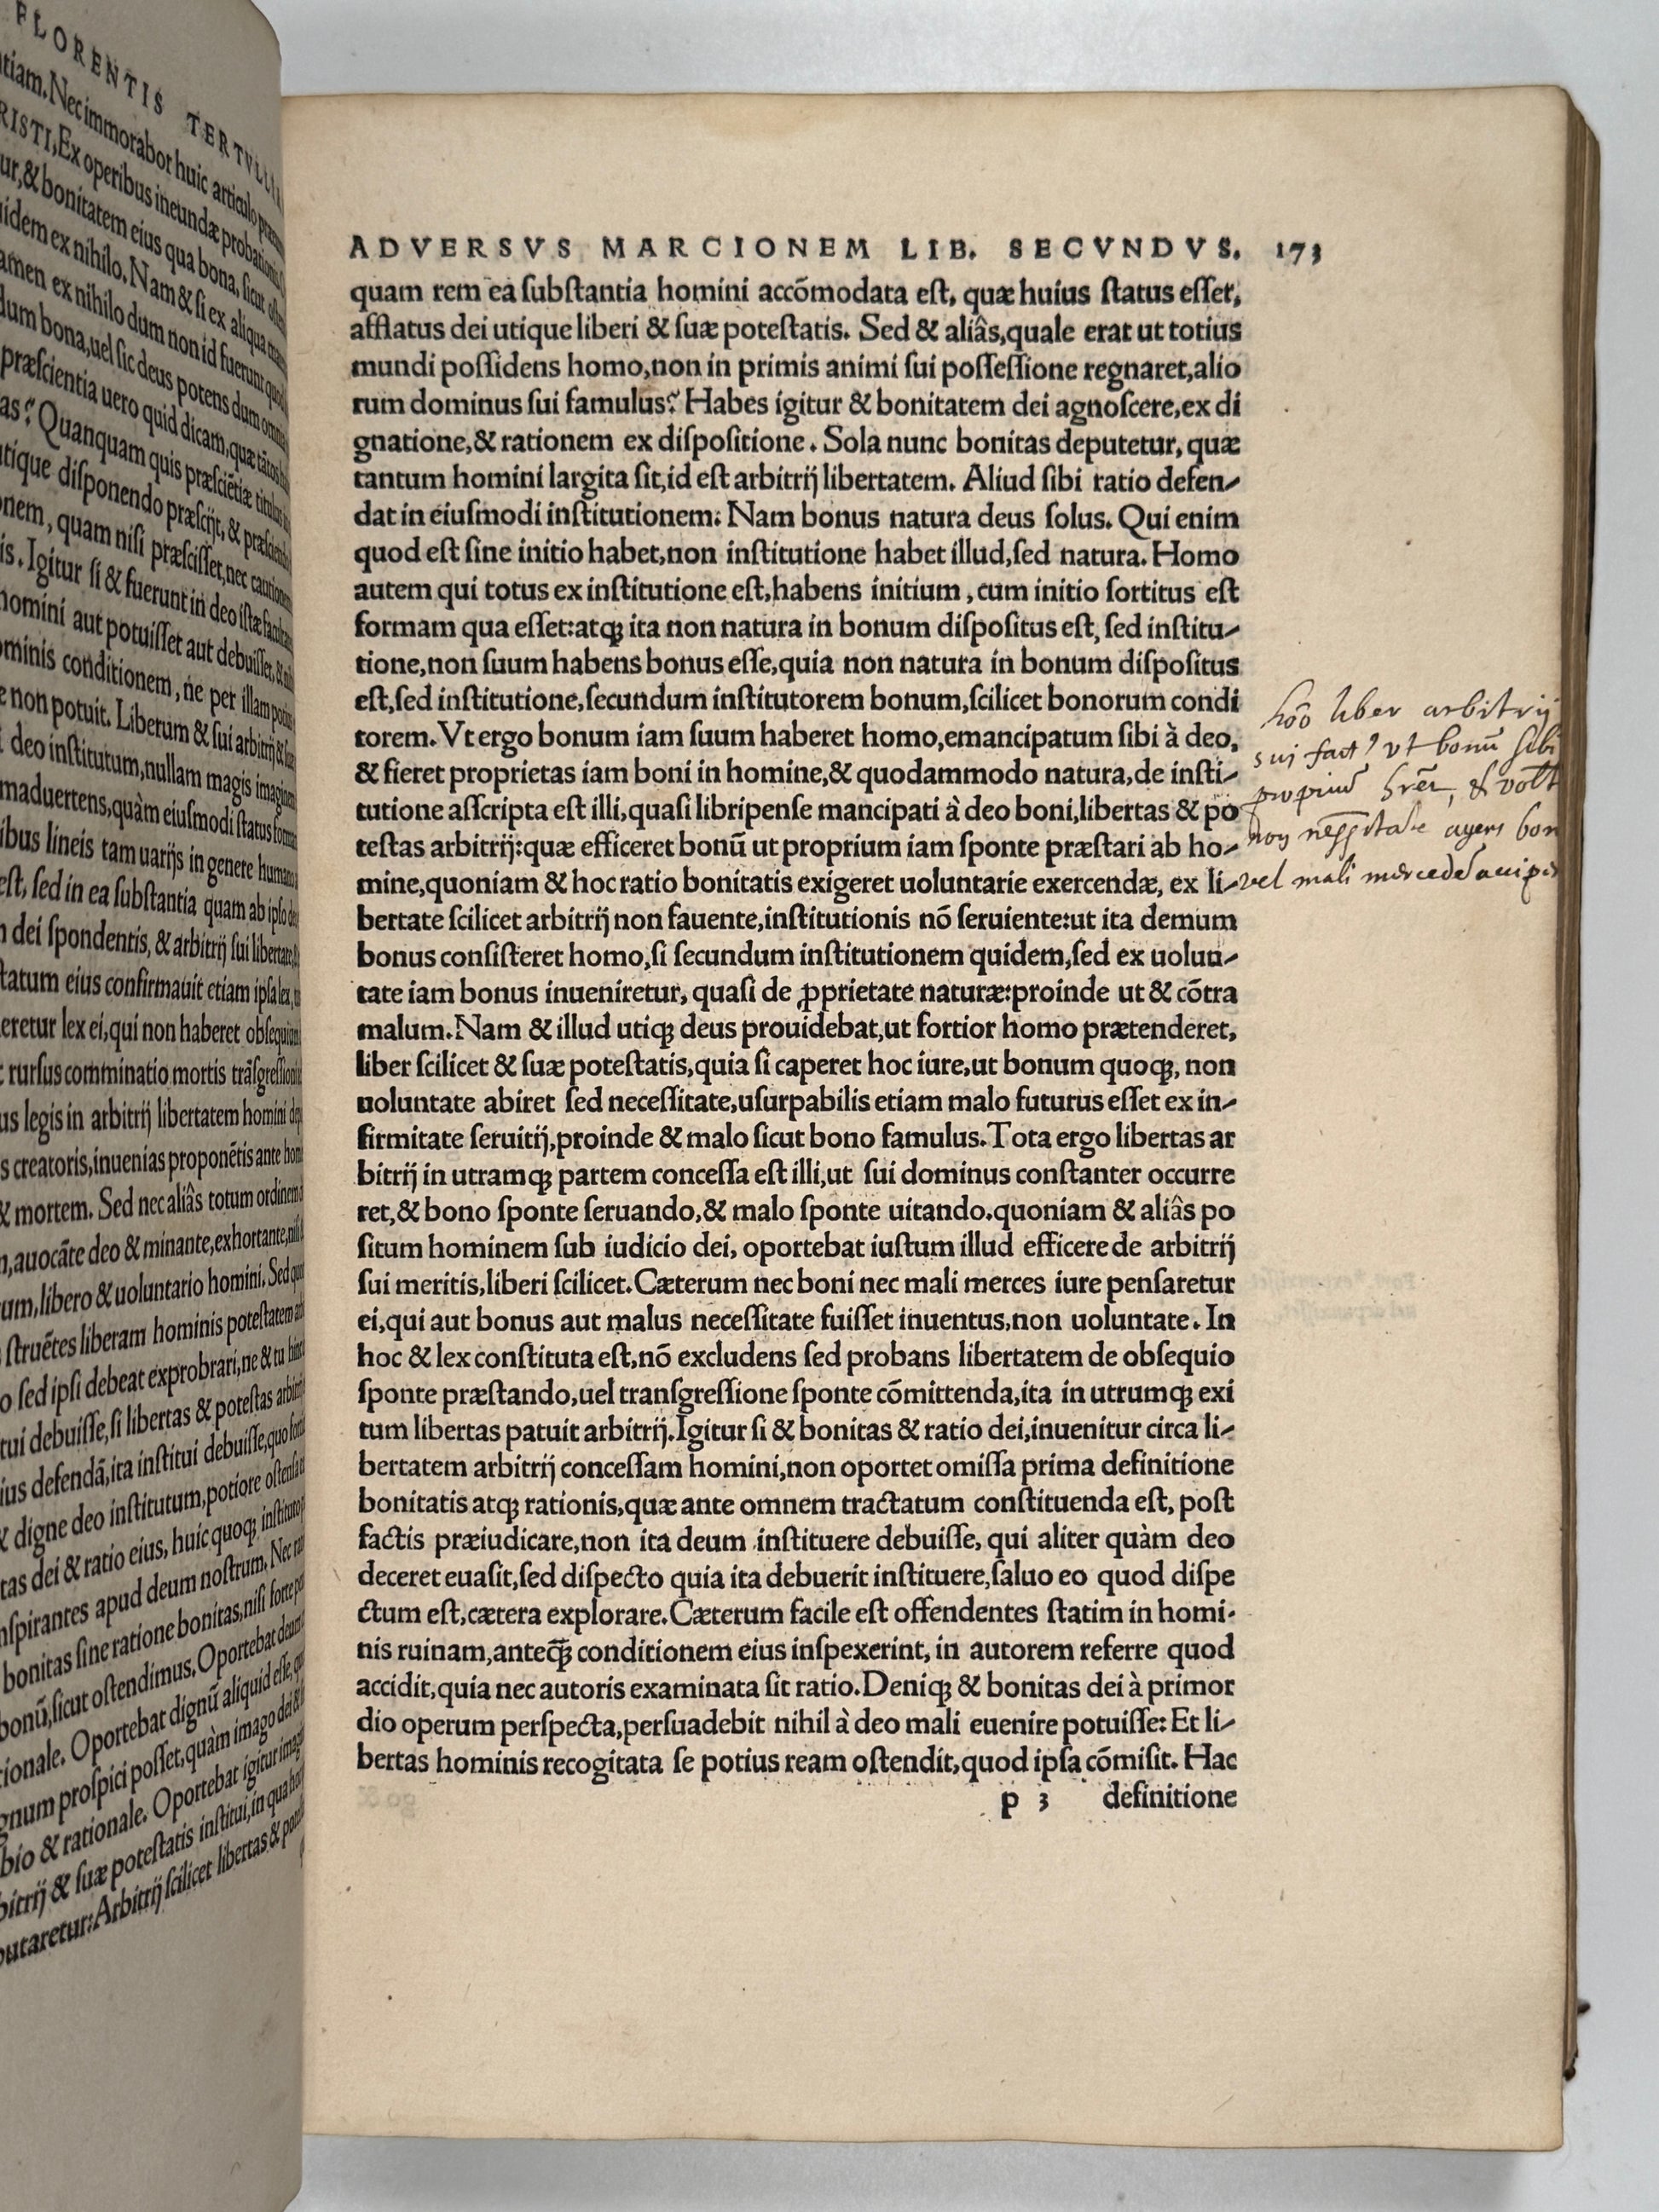 FLORENTIS TERTVLLI
tiam. Nec immorabor huic articulo
RISTI, Ex operibus ineundæ probationis
ur, & bonitatem eius qua bona, sicut
idem ex nihilo. Nam & si ex aliqua
amen ex nihilo dum non id fuerunt quod
dum bona, uel sic deus potens dum omnia
præscientia uero quid dicam, quæ tātos
as? Quanquam quis præsciētiæ titulus
utique disponendo præscijt, & præsciendo
nem, quam nisi præscisset, nec cautionem
is. Igitur si & fuerunt in deo istæ facultates
homini aut potuisset aut debuisset, &
ominis conditionem, ne per illam potius
e non potuit. Liberum & sui arbitrij & suæ
deo institutum, nullam magis imaginem
maduertens, quàm eiusmodi status formam
ibus lineis tam uarijs in genere humano
est, sed in ea substantia quam ab ipso deo
dei spondentis, & arbitrij sui libertate
tatum eius confirmauit etiam ipsa lex,
eretur lex ei, qui non haberet obsequium
rursus comminatio mortis trāsgressioni
us legis in arbitrij libertatem homini
s creatoris, inuenias proponētis ante
& mortem. Sed nec aliâs totum ordinem
n, auocāte deo & minante, exhortante, nisi
um, libero & uoluntario homini. Sed quo
struētes liberam hominis potestatem
o sed ipsi debeat exprobrari, ne & tu hinc
tui debuisse, si libertas & potestas arbitrij
ius defendā, ita institui debuisse, quo
& digne deo institutum, potiore ostensa
tas dei & ratio eius, huic quoq;
nspirantes apud deum nostrum. Nec
bonitas sine ratione bonitas, nisi forte
bonū, sicut ostendimus. Oportebat deum
tionale. Oportebat dignū aliquid esse,
gnum prospici posset, quàm imago dei &
bio & rationale. Oportebat igitur
bitrij & suæ potestatis institui, in qua
putaretur: Arbitrij scilicet libertas &
ADVERSVS MARCIONEM LIB. SECVNDVS. 173
quam rem ea substantia homini accōmodata est, quæ huius status esset,
afflatus dei utique liberi & suæ potestatis. Sed & aliâs, quale erat ut totius
mundi possidens homo, non in primis animi sui possessione regnaret, alio
rum dominus sui famulus? Habes igitur & bonitatem dei agnoscere, ex di
gnatione, & rationem ex dispositione. Sola nunc bonitas deputetur, quæ
tantum homini largita sit, id est arbitrij libertatem. Aliud sibi ratio defen-
dat in eiusmodi institutionem: Nam bonus natura deus solus. Qui enim
quod est sine initio habet, non institutione habet illud, sed natura. Homo
autem qui totus ex institutione est, habens initium, cum initio sortitus est
formam qua esset: atq; ita non natura in bonum dispositus est, sed institu-
tione, non suum habens bonus esse, quia non natura in bonum dispositus
est, sed institutione, secundum institutorem bonum, scilicet bonorum condi
torem. Vt ergo bonum iam suum haberet homo, emancipatum sibi à deo,
& fieret proprietas iam boni in homine, & quodammodo natura, de insti-
tutione asscripta est illi, quasi libripense mancipati à deo boni, libertas & po
testas arbitrij: quæ efficeret bonū ut proprium iam sponte præstari ab ho-
mine, quoniam & hoc ratio bonitatis exigeret uoluntarie exercendæ, ex li-
bertate scilicet arbitrij non fauente, institutionis nō seruiente: ut ita demum
bonus consisteret homo, si secundum institutionem quidem, sed ex uolun-
tate iam bonus inueniretur, quasi de ꝓprietate naturæ: proinde ut & cōtra
malum. Nam & illud utiq; deus prouidebat, ut fortior homo prætenderet,
liber scilicet & suæ potestatis, quia si caperet hoc iure, ut bonum quoq;, non
uoluntate abiret sed necessitate, usurpabilis etiam malo futurus esset ex in-
firmitate seruitij, proinde & malo sicut bono famulus. Tota ergo libertas ar
bitrij in utramq; partem concessa est illi, ut sui dominus constanter occurre
ret, & bono sponte seruando, & malo sponte uitando. quoniam & aliâs po
situm hominem sub iudicio dei, oportebat iustum illud efficere de arbitrij
sui meritis, liberi scilicet. Cæterum nec boni nec mali merces iure pensaretur
ei, qui aut bonus aut malus necessitate fuisset inuentus, non uoluntate. In
hoc & lex constituta est, nō excludens sed probans libertatem de obsequio
sponte præstando, uel transgressione sponte cōmittenda, ita in utrumq; exi
tum libertas patuit arbitrij. Igitur si & bonitas & ratio dei, inuenitur circa li-
bertatem arbitrij concessam homini, non oportet omissa prima definitione
bonitatis atq; rationis, quæ ante omnem tractatum constituenda est, post
factis præiudicare, non ita deum instituere debuisse, qui aliter quàm deo
deceret euasit, sed dispecto quia ita debuerit instituere, saluo eo quod dispe
ctum est, cætera explorare. Cæterum facile est offendentes statim in homi-
nis ruinam, anteq̃; conditionem eius inspexerint, in autorem referre quod
accidit, quia nec autoris examinata sit ratio. Deniq; & bonitas dei à primor
dio operum perspecta, persuadebit nihil à deo mali euenire potuisse: Et li-
bertas hominis recogitata se potius ream ostendit, quod ipsa cōmisit. Hac
p 3 definitione
hōo liber arbitrij
sui fact' vt bonū sibi
propriū hrēt, & volt
non necessitate agens bon
vel mali mercedē accipi